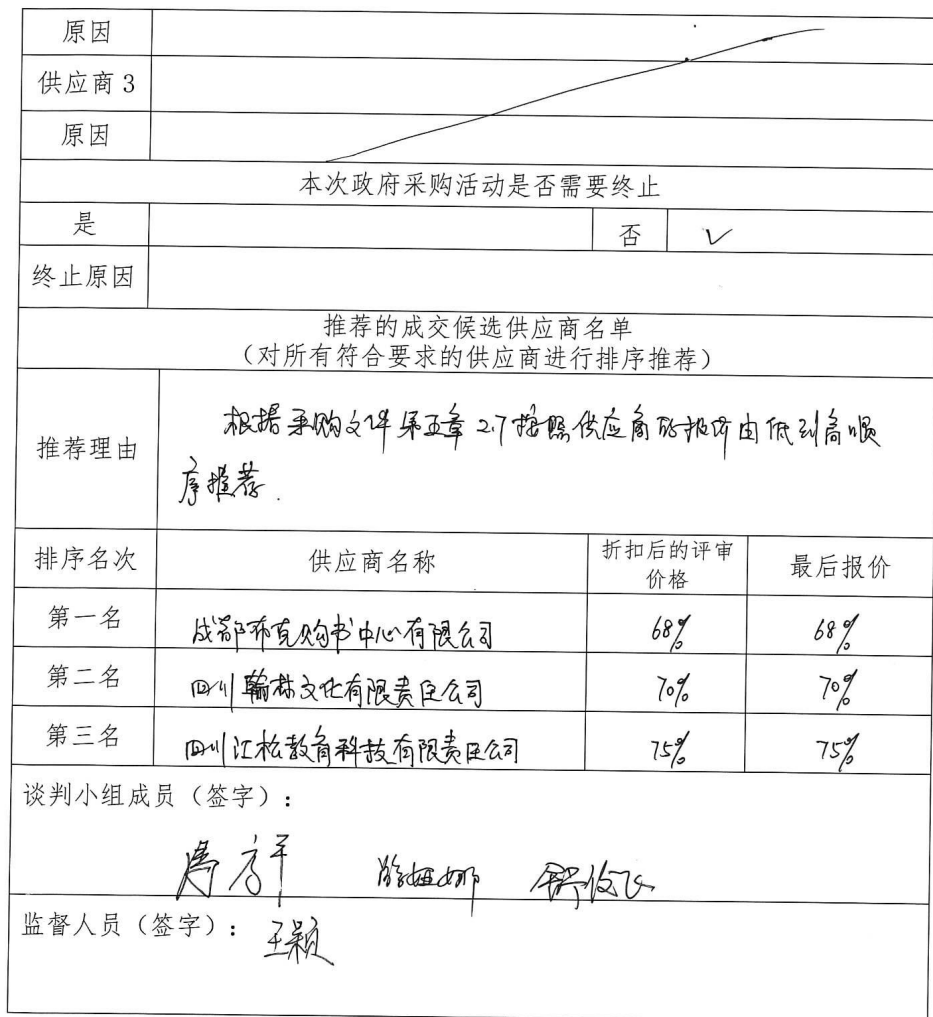 原因
供应商3
原因
本次政府采购活动是否需要终止
是 否 √
终止原因
推荐的成交候选供应商名单
（对所有符合要求的供应商进行排序推荐）
推荐理由
根据采购文件第五章2.7按照供应商的报价由低到高顺
序推荐.
排序名次 供应商名称 折扣后的评审价格 最后报价
第一名 成都布克购书中心有限公司 68% 68%
第二名 四川翰林文化有限责任公司 70% 70%
第三名 四川江松教育科技有限责任公司 75% 75%
谈判小组成员（签字）：
监督人员（签字）：王颖